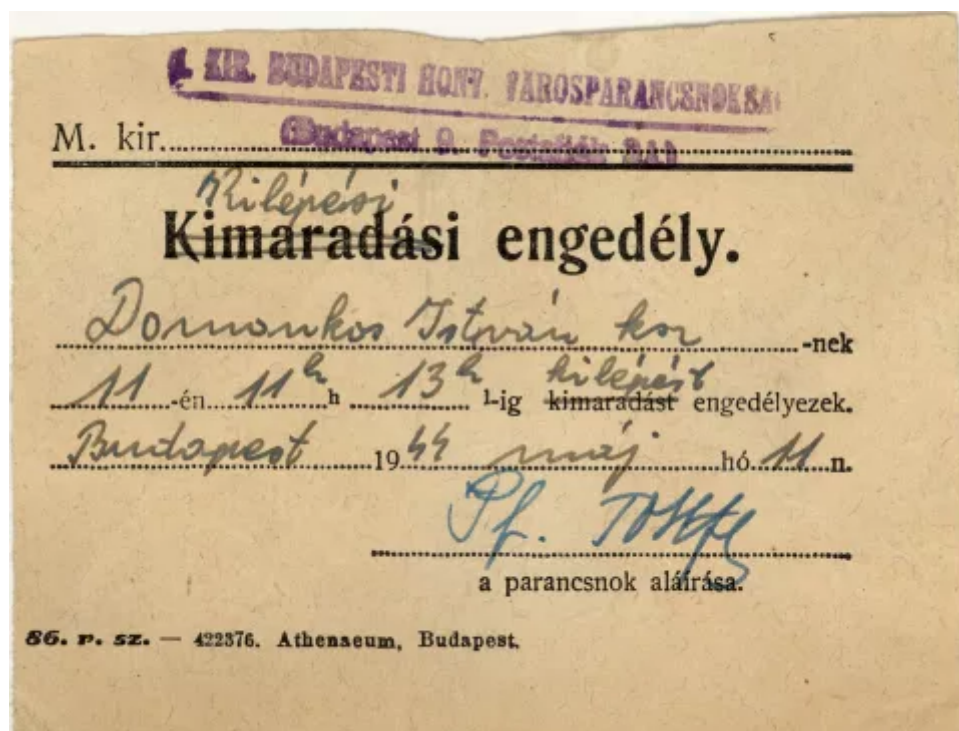 M. KIR. BUDAPESTI HONV. VÁROSPARANCSNOKSÁG
M. kir. (Budapest 9. Postafiók
Kilépési
Kimaradási engedély.
Domonkos István ksz -nek
kilépést
11 -én 11 h h 13 h l-ig kimaradást engedélyezek.
Budapest 1944 máj hó 11 n.
Pf.
a parancsnok aláírása.
86. r. sz. — 422376. Athenaeum, Budapest.